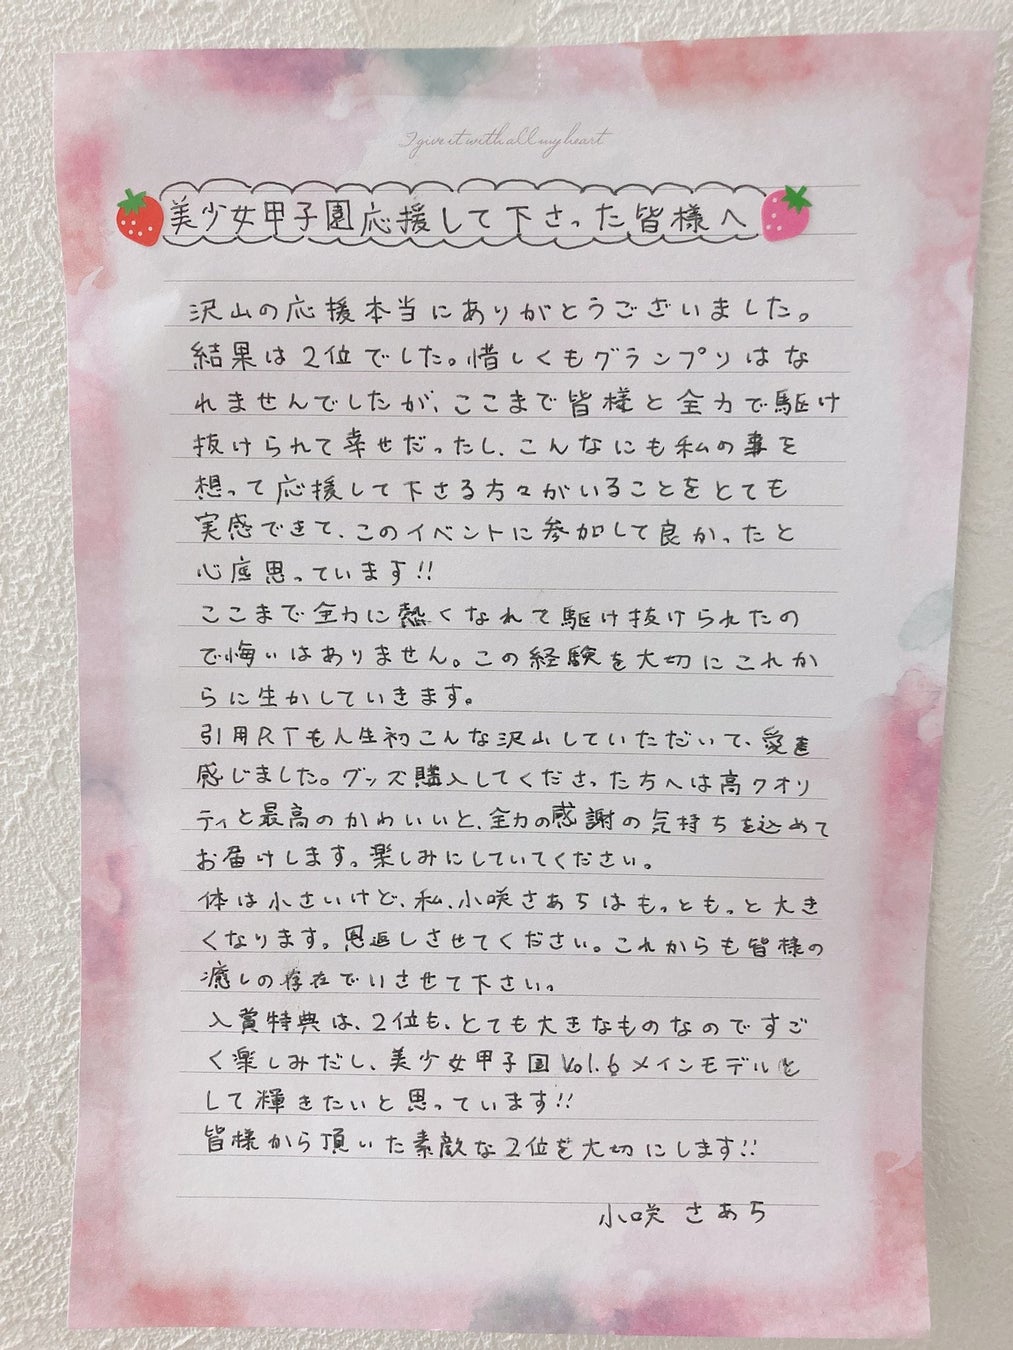 I give it with all my heart
美少女甲子園応援して下さった皆様へ
沢山の応援本当にありがとうございました。
結果は2位でした。惜しくもグランプリはな
れませんでしたが、ここまで皆様と全力で駆け
抜けられて幸せだったし、こんなにも私の事を
想って応援して下さる方々がいることをとても
実感できて、このイベントに参加して良かったと
心底思っています!!
ここまで全力に熱くなれて駆け抜けられたの
で悔いはありません。この経験を大切にこれか
らに生かしていきます。
引用RTも人生初こんな沢山していただいて、愛を
感じました。グッズ購入してくださった方へは高クオリ
ティと最高のかわいいと、全力の感謝の気持ちを込めて
お届けします。楽しみにしていてください。
体は小さいけど、私、小咲さあちはもっともっと大き
くなります。恩返しさせてください。これからも皆様の
癒しの存在でいさせて下さい。
入賞特典は、2位も、とても大きなものなのですご
く楽しみだし、美少女甲子園Vol.6メインモデルと
して輝きたいと思っています!!
皆様から頂いた素敵な2位を大切にします!!
小咲 さあち